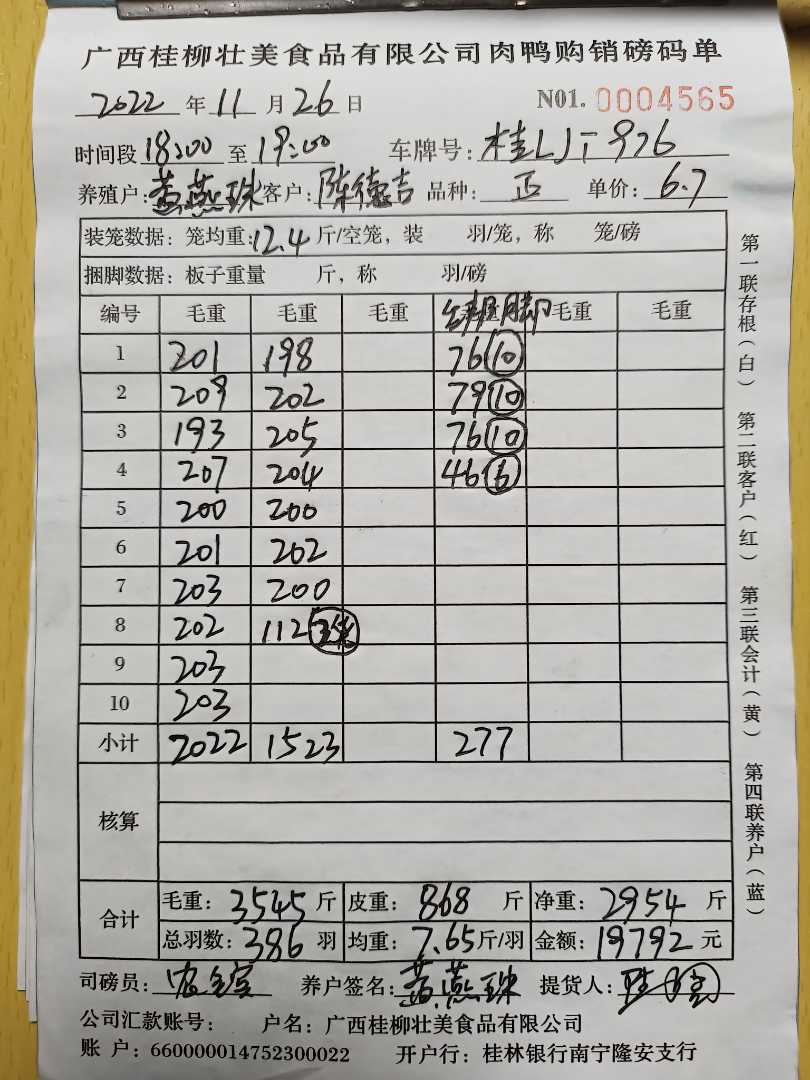 广西桂柳壮美食品有限公司肉鸭购销磅码单
2022 年 11 月 26 日 N01. 0004565
时间段 18:00 至 19:00 车牌号: 桂LJT976
养殖户: 黄燕珠 客户: 陈德吉 品种: 正 单价: 6.7
装笼数据: 笼均重: 12.4 斤/空笼, 装 羽/笼, 称 笼/磅
捆脚数据: 板子重量 斤, 称 羽/磅
编号 毛重 毛重 毛重 脚 毛重 毛重
1 201 198 76 10
2 209 202 79 10
3 193 205 76 10
4 207 204 46 6
5 200 200
6 201 202
7 203 200
8 202 112
9 203
10 203
小计 2022 1523 277
核算
合计
毛重: 3545 斤 皮重: 868 斤 净重: 2954 斤
总羽数: 386 羽 均重: 7.65 斤/羽 金额: 19792 元
司磅员: 养户签名: 黄燕珠 提货人:
公司汇款账号: 户名: 广西桂柳壮美食品有限公司
账 户: 660000014752300022 开户行: 桂林银行南宁隆安支行
第一联存根(白) 第二联客户(红) 第三联会计(黄) 第四联养户(蓝)